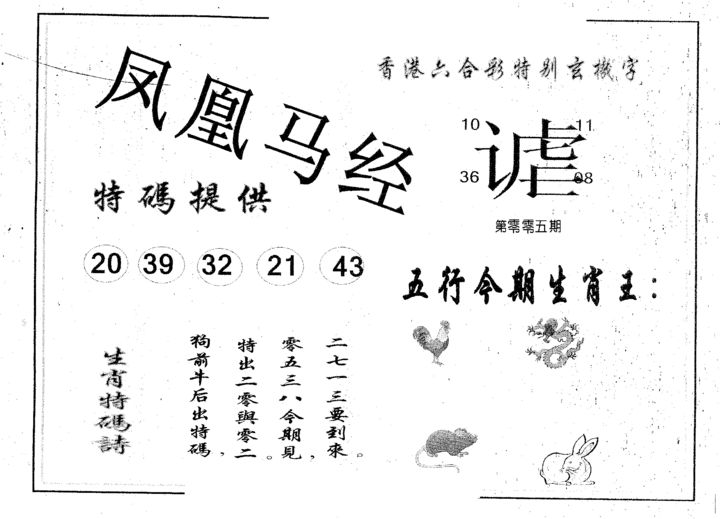 凤凰马经
香港六合彩特别玄機字
10 11
谑
36 08
第零零五期
特碼提供
20 39 32 21 43
五行今期生肖王：
生肖特碼詩
狗前牛后出特碼，
特出二零與零二。
零五三八今期見，
二七一三要到來。